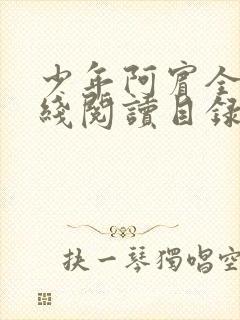 少年阿賓全
綫閱讀目録
抉一琴獨唱空